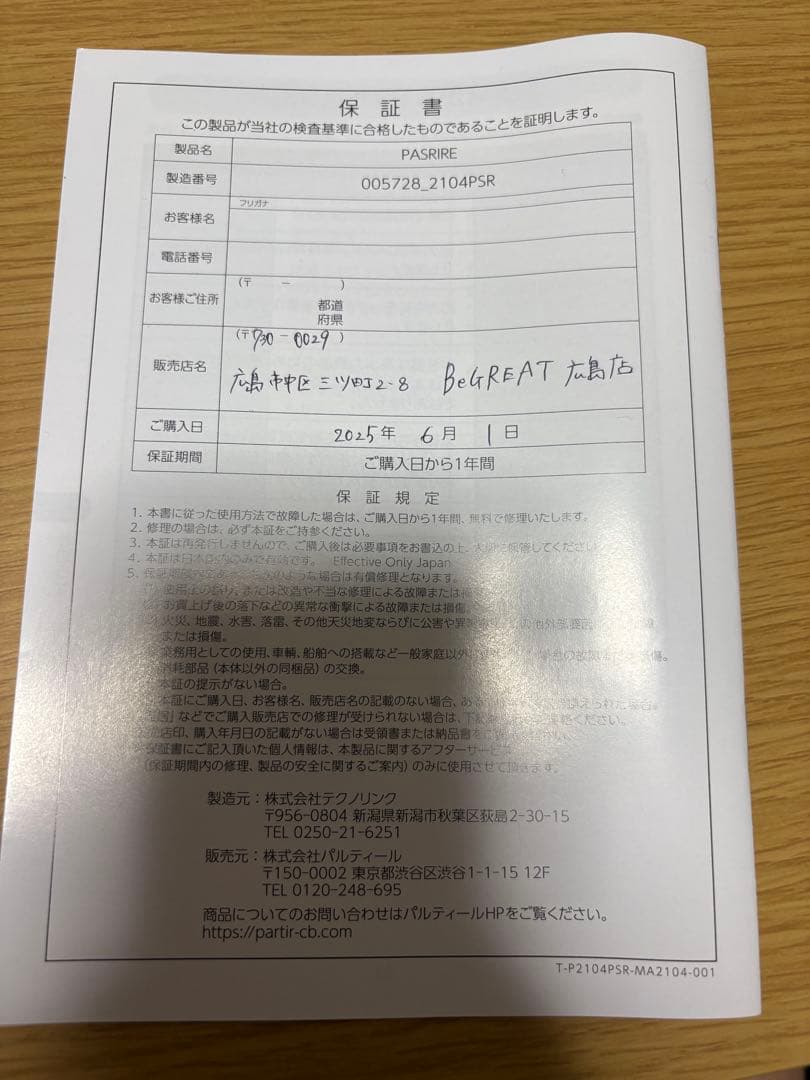 保証書
この製品が当社の検査基準に合格したものであることを証明します。
製品名 PASRIRE
製造番号 005728_2104PSR
フリガナ
お客様名
電話番号
お客様ご住所 (〒 － )
都道
府県
(〒730-0029)
販売店名 広島市中区三ツ町2-8 BeGREAT 広島店
ご購入日 2025年 6月 1日
保証期間 ご購入日から1年間
保証規定
1. 本書に従った使用方法で故障した場合は、ご購入日から1年間、無料で修理いたします。
2. 修理の場合は、必ず本証をご持参ください。
3. 本証は再発行しませんので、ご購入後は必要事項をお書込の上、大切に保管してください。
4. 本証は日本国内のみで有効です。 Effective Only Japan
5. 保証期間内であっても次のような場合は有償修理となります。
使用上の誤り、または改造や不当な修理による故障または損傷
お買上げ後の落下などの異常な衝撃による故障または損傷
火災、地震、水害、落雷、その他天災地変ならびに公害や異常
または損傷。
業務用としての使用、車輌、船舶への搭載など一般家庭以外
消耗部品(本体以外の同梱品)の交換。
本証の提示がない場合。
本証にご購入日、お客様名、販売店名の記載のない場合、ある
などでご購入販売店での修理が受けられない場合は、下記
店印、購入年月日の記載がない場合は受領書または納品書を
保証書にご記入頂いた個人情報は、本製品に関するアフターサービス
(保証期間内の修理、製品の安全に関するご案内)のみに使用させて頂きます。
製造元：株式会社テクノリンク
〒956-0804 新潟県新潟市秋葉区荻島2-30-15
TEL 0250-21-6251
販売元：株式会社パルティール
〒150-0002 東京都渋谷区渋谷1-1-15 12F
TEL 0120-248-695
商品についてのお問い合わせはパルティールHPをご覧ください。
https://partir-cb.com
T-P2104PSR-MA2104-001